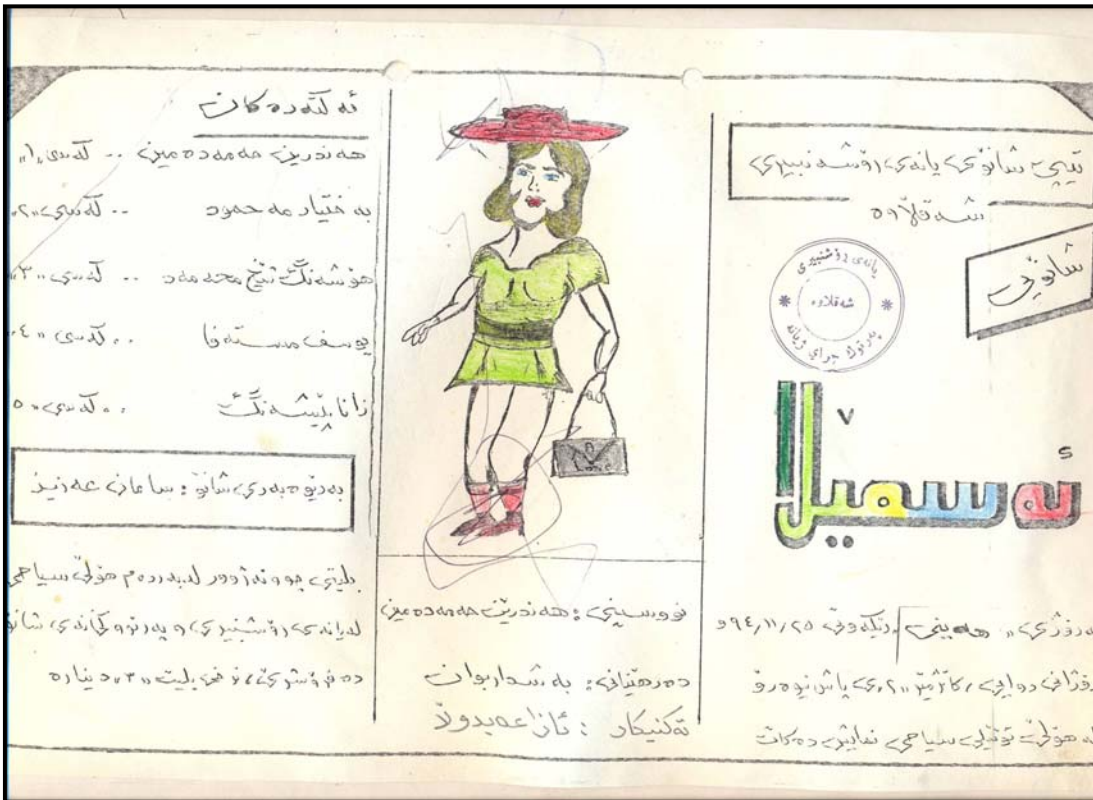 تیپی شانۆی یانەی ڕۆشەنبیری
شەقڵاوە
شانۆیی
یانەی ڕۆشنبیری
شەقلاوە
ئەسمیلا
ڕۆژی، هەینی ڕێکەوتی ٩٤/١١/٢٥ و
ڕۆژانی دوایی، کاتژمێر «٢»ی پاش نیوەڕۆ
لە هۆڵی سیاحی نمایش دەکات
نووسینی: هەندرێن حەمەدەمین
دەرهێنانی: بەشداربوان
تەکنیکار: ئازا عەبدوڵا
ئەکتەرەکان
هەندرین حەمەدەمین .. کەسی «١»
بەختیار مەحمود .. کەسی «٢»
هۆشەنگ شێخ محەمەد .. کەسی «٣»
یوسف مستەفا .. کەسی «٤»
زانا پێشەنگ .. کەسی «٥»
بەڕێوەبەری شانۆ: سامان عەزیز
بلیتی چوونەژوور لەبەردەم هۆڵی سیاحی
لەیانەی ڕۆشنبیری و پەرتووکخانەی شانۆ
دەفرۆشرێ، نرخی بلیت «٣» دینارە